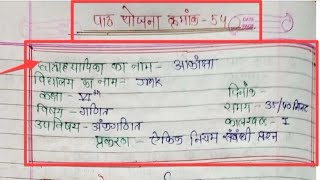 पाठ योजना क्रमांक - 54
छात्राध्यापिका का नाम - आकांक्षा
विद्यालय का नाम - JMK
कक्षा - VIth दिनाँक -
विषय - गणित समय - 35/40 मिनट
उपविषय - अंकगणित कालखण्ड - I
प्रकरण - ऐकिक नियम संबंधी प्रश्न